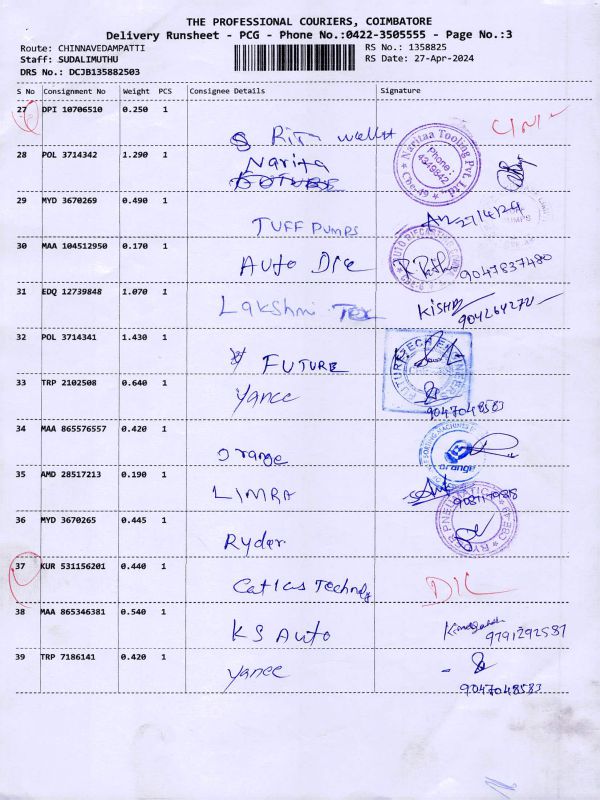 THE PROFESSIONAL COURIERS, COIMBATORE
Delivery Runsheet - PCG - Phone No.:0422-3505555 - Page No.:3
Route: CHINNAVEDAMPATTI RS No.: 1358825
Staff: SUDALIMUTHU RS Date: 27-Apr-2024
DRS No.: DCJB135882503
S No Consignment No Weight PCS Consignee Details Signature
27 DPI 10706510 0.250 1
28 POL 3714342 1.290 1 Narita
Naritaa Tooling Pvt. Ltd.
Phone: 4349842
Cbe-49
29 MYD 3670269 0.490 1 TUFF PUMPS 27/4/24
30 MAA 104512950 0.170 1 Auto Die 9047837480
31 EDQ 12739848 1.070 1 Lakshmi Tex
32 POL 3714341 1.430 1 FUTURE
33 TRP 2102508 0.640 1 Yanee 9047048583
34 MAA 865576557 0.420 1 Orange
orange
35 AMD 28517213 0.190 1 LIMRA
36 MYD 3670265 0.445 1 Ryder
37 KUR 531156201 0.440 1
38 MAA 865346381 0.540 1 KS Auto 9791292587
39 TRP 7186141 0.420 1 Yanee 9047048583